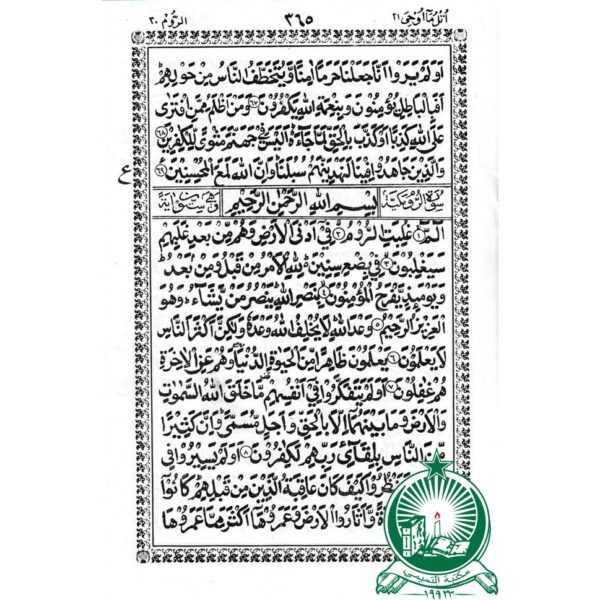 اتل ما اوحی ۲۱
۳۶۵
الروم ۳۰
اَوَلَمْ يَرَوْا اَنَّا جَعَلْنَا حَرَمًا اٰمِنًا وَّيُتَخَطَّفُ النَّاسُ مِنْ حَوْلِهِمْ
اَفَبِالْبَاطِلِ يُؤْمِنُوْنَ وَبِنِعْمَةِ اللهِ يَكْفُرُوْنَ ۶۷ وَمَنْ اَظْلَمُ مِمَّنِ افْتَرٰى
عَلَى اللهِ كَذِبًا اَوْ كَذَّبَ بِالْحَقِّ لَمَّا جَآءَهٗ اَلَيْسَ فِيْ جَهَنَّمَ مَثْوًى لِّلْكٰفِرِيْنَ ۶۸
وَالَّذِيْنَ جَاهَدُوْا فِيْنَا لَنَهْدِيَنَّهُمْ سُبُلَنَا وَاِنَّ اللهَ لَمَعَ الْمُحْسِنِيْنَ ۶۹
ع
سُوْرَةُ الرُّوْمِ مَكِّيَّةٌ بِسْمِ اللهِ الرَّحْمٰنِ الرَّحِيْمِ وَهِيَ سِتُّوْنَ اٰيَةً
الٓمّٓ ۱ غُلِبَتِ الرُّوْمُ ۲ فِيْٓ اَدْنَى الْاَرْضِ وَهُمْ مِّنْ بَعْدِ غَلَبِهِمْ
سَيَغْلِبُوْنَ ۳ فِيْ بِضْعِ سِنِيْنَ لِلّٰهِ الْاَمْرُ مِنْ قَبْلُ وَمِنْ بَعْدُ
وَيَوْمَئِذٍ يَّفْرَحُ الْمُؤْمِنُوْنَ ۴ بِنَصْرِ اللهِ يَنْصُرُ مَنْ يَّشَآءُ وَهُوَ
الْعَزِيْزُ الرَّحِيْمُ ۵ وَعْدَ اللهِ لَا يُخْلِفُ اللهُ وَعْدَهٗ وَلٰكِنَّ اَكْثَرَ النَّاسِ
لَا يَعْلَمُوْنَ ۶ يَعْلَمُوْنَ ظَاهِرًا مِّنَ الْحَيٰوةِ الدُّنْيَا وَهُمْ عَنِ الْاٰخِرَةِ
هُمْ غٰفِلُوْنَ ۷ اَوَلَمْ يَتَفَكَّرُوْا فِيْٓ اَنْفُسِهِمْ مَا خَلَقَ اللهُ السَّمٰوٰتِ
وَالْاَرْضَ وَمَا بَيْنَهُمَآ اِلَّا بِالْحَقِّ وَاَجَلٍ مُّسَمًّى وَاِنَّ كَثِيْرًا
مِّنَ النَّاسِ بِلِقَآئِ رَبِّهِمْ لَكٰفِرُوْنَ ۸ اَوَلَمْ يَسِيْرُوْا فِي
كَيْفَ كَانَ عَاقِبَةُ الَّذِيْنَ مِنْ قَبْلِهِمْ كَانُوْٓا
وَّاَثَارُوا الْاَرْضَ وَعَمَرُوْهَآ اَكْثَرَ مِمَّا عَمَرُوْهَا
مكتبة التميمي